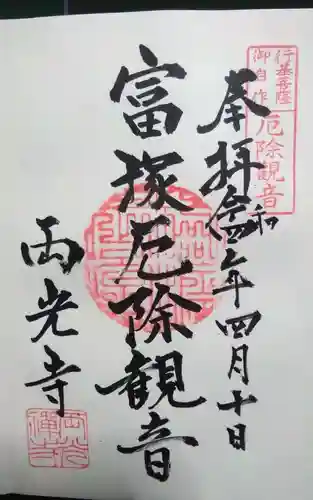 行基菩薩
御自作
厄除観音
奉拝
令和四年四月十日
富塚厄除観音
両光寺